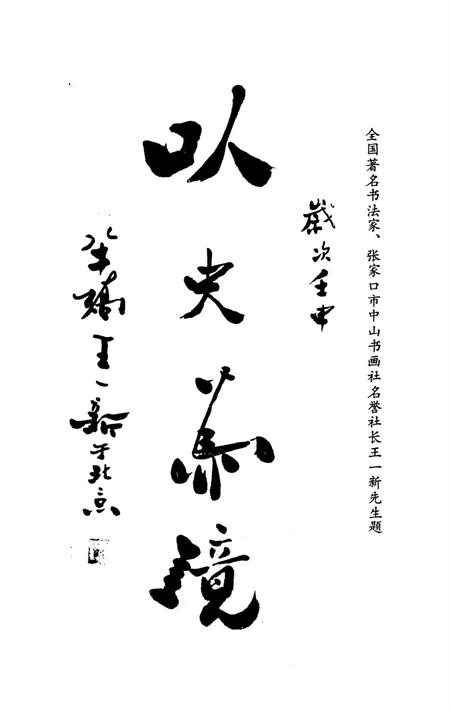 全国著名书法家、张家口市中山书画社名誉社长王一新先生题
歲次壬申
以史為鏡
王一新于北京